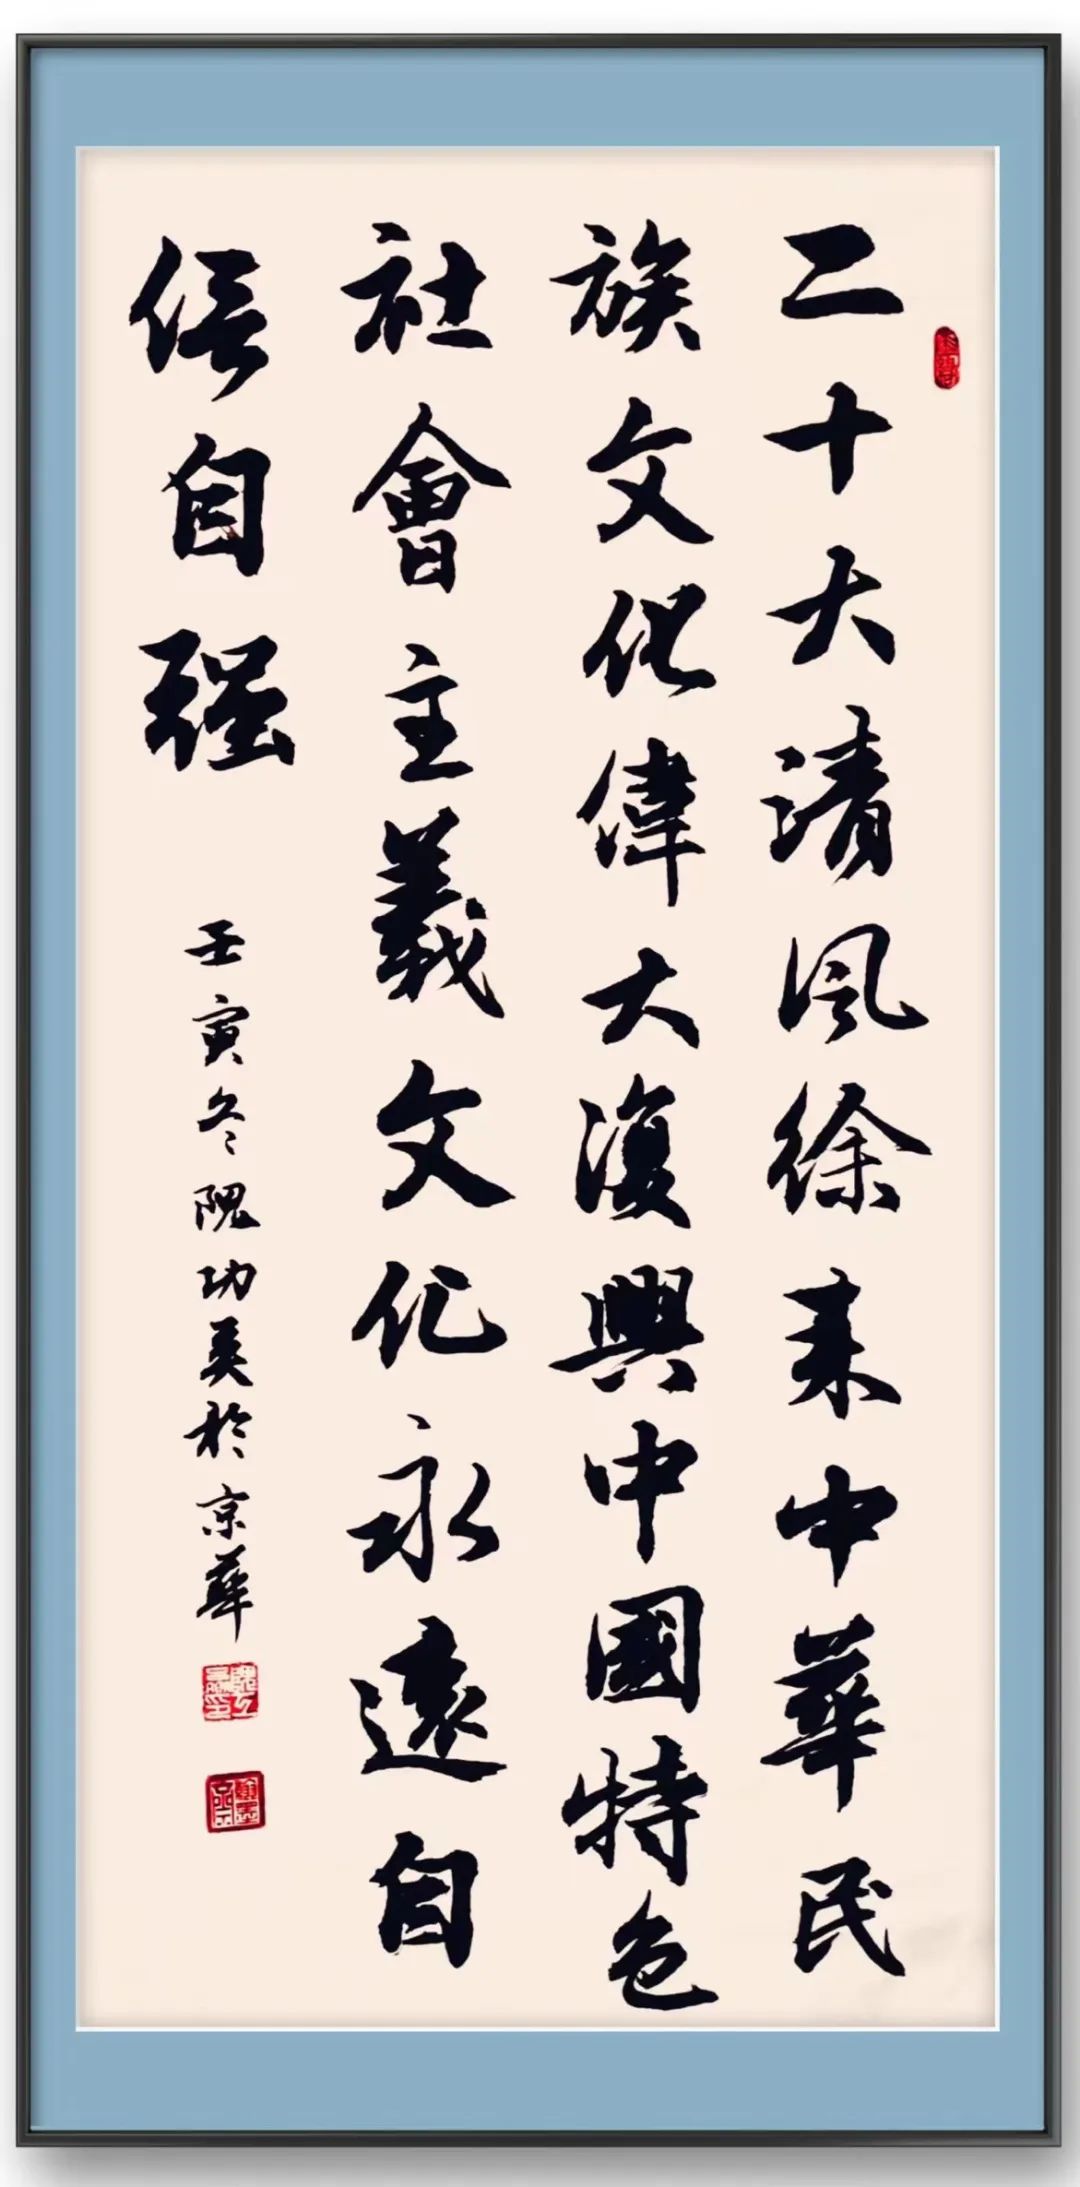 二十大清风徐来中华民
族文化偉大復興中國特色
社會主義文化永遠自
信自强
壬寅冬隗功英於京華